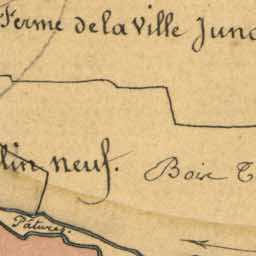 Ferme de la Ville Jund
lin neuf.
Boix
Pâtures.